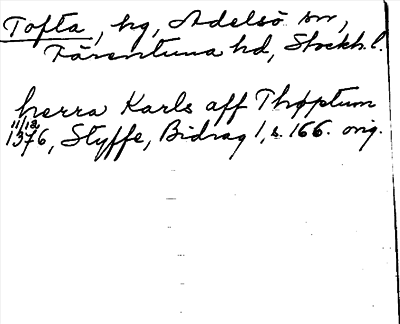 Tofta, hg, Adelsö sn,
Färentuna hd, Stockh. l.
herra Karls aff Thøptum
11/12
1376, Styffe, Bidrag 1, s. 166. orig.